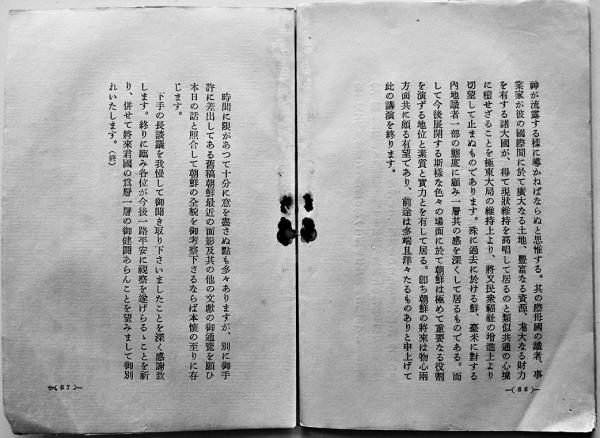 神が流露する樣に導かねばならぬと思惟する。其の際母國の識者、事
業家が彼の國際間に於て廣大なる土地、豐富なる資源、尨大なる財力
を有する諸大國が、得て現狀維持を高唱して居るのと類似共通の心境
に陷せざることを極東大局の維持上より、將又民衆福祉の增進上より
切望して止まぬものであります。殊に過去に於ける鮮、臺米に對する
內地識者一部の態度に顧み一層共の感を深くして居るものである。而
して今後展開する斯樣な色々の場面に於て朝鮮は極めて重要なる役割
を演ずる地位と素質と實力とを有して居る。卽ち朝鮮の將來は物心兩
方面共に頗る有望であり、前途は多端且洋々たるものありと申上げて
此の講演を終ります。
—(66)—
時間に限があつて十分に意を盡さぬ點も多々ありますが、別に御手
許に差出してある舊稿朝鮮最近の面影及其の他の文獻の御通覽を願ひ
本日の話と照合して朝鮮の全貌を御考察下さるならば本懷の至りに存
じます。
下手の長談議を我慢して御聞き取り下さいましたことを深く感謝致
します。終りに臨み各位が今後一路平安に視察を遂げらるゝことを祈
り、併せて將來君國の爲層一層の御健鬪あらんことを望みまして御別
れいたします。（終）
—(67)—